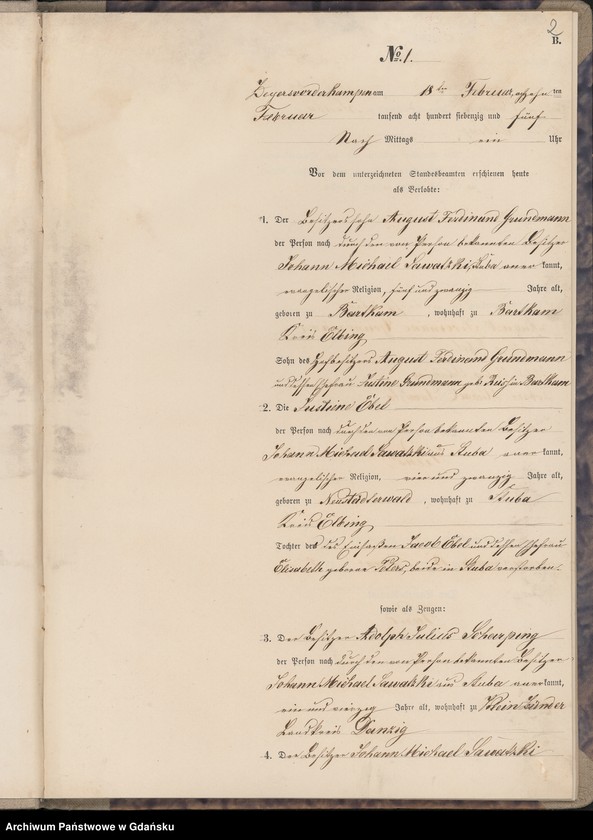 2
B.
No. 1.
Zeyersvorderkampen am 18ten Februar, achtzehnten
Februar tausend acht hundert siebenzig und fünf
Nach Mittags ein Uhr
Vor dem unterzeichneten Standesbeamten erschienen heute
als Verlobte:
1. Der Besitzerssohn August Ferdinand Grundemann
der Person nach durch den von Person bekannten Besitzer
Johann Michael Sawatzki, Stuba anerkannt,
evangelischer Religion, fünf und zwanzig Jahre alt,
geboren zu Bartkam, wohnhaft zu Bartkam
Kreis Elbing
Sohn des Hofbesitzers August Ferdinand Grundemann
und dessen Ehefrau Justine Grundemann geb. in Bartkam
2. Die Justine Ebel
der Person nach durch den von Person bekannten Besitzer
Johann Michael Sawatzki aus Stuba anerkannt,
evangelischer Religion, vier und zwanzig Jahre alt,
geboren zu Neustädterwald, wohnhaft zu Stuba
Kreis Elbing
Tochter des Einsaßen Jacob Ebel und dessen Ehefrau
Elisabeth geborene Peters, beide in Stuba verstorben.
sowie als Zeugen:
3. Der Besitzer Adolph Julius Scharping
der Person nach durch den von Person bekannten Besitzer
Johann Michael Sawatzki aus Stuba anerkannt,
ein und vierzig Jahre alt, wohnhaft zu Klein Zünder
Landkreis Danzig
4. Der Besitzer Johann Michael Sawatzki
Archiwum Państwowe w Gdańsku